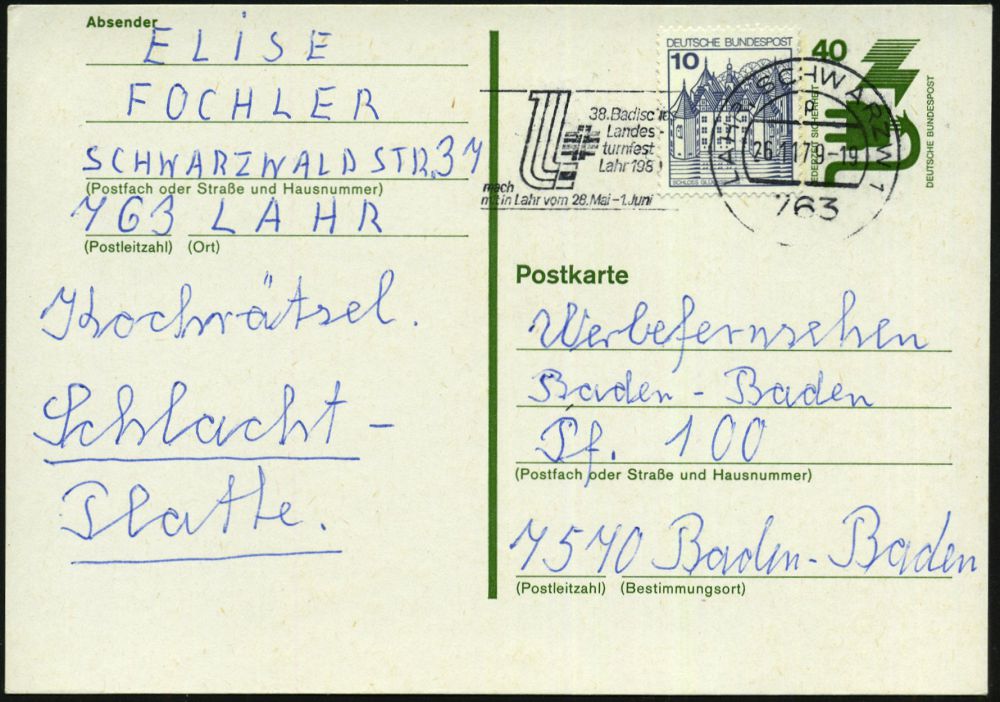 Absender
ELISE
FOCHLER
SCHWARZWALDSTR. 37
(Postfach oder Straße und Hausnummer)
763 LAHR
(Postleitzahl) (Ort)
Kochrätsel.
Schlacht-
Platte.
38. Badisches
Landes-
turnfest
Lahr 198
mach
mit in Lahr vom 28. Mai - 1. Juni
DEUTSCHE BUNDESPOST
10
SCHLOSS
40
JEDERZEIT SICHERHEIT
DEUTSCHE BUNDESPOST
LAHR, SCHWARZW 1
26.11.79-19
763
Postkarte
Werbefernsehen
Baden - Baden
Pf. 100
(Postfach oder Straße und Hausnummer)
7570 Baden-Baden
(Postleitzahl) (Bestimmungsort)